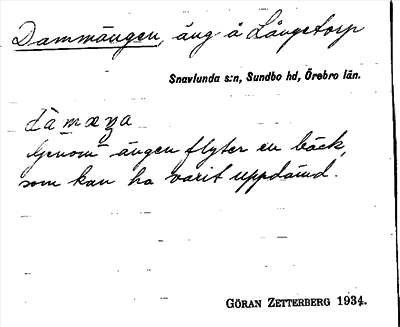 Dammängen, äng å Långetorp
Snavlunda s:n, Sundbo hd, Örebro län.
Genom ängen flyter en bäck,
som kan ha varit uppdämd.
GÖRAN ZETTERBERG 1934.